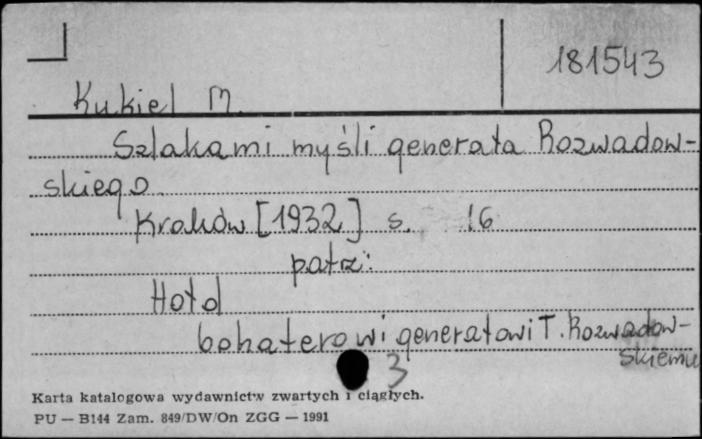 181543
Kukiel M.
Szlakami myśli generała Rozwadow-
skiego
Kraków [1932] s. 16
patrz:
Hołd
bohaterowi generałowi T. Rozwadow-
skiemu
3
Karta katalogowa wydawnictw zwartych i ciągłych.
PU — B144 Zam. 849/DW/On ZGG — 1991